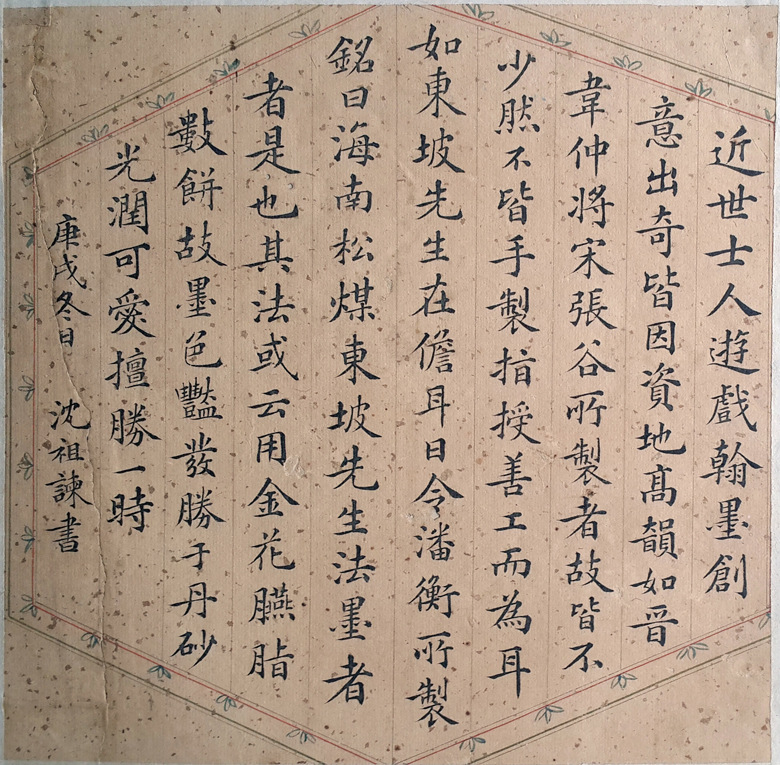 近世士人遊戲翰墨創
意出奇皆因資地高韻如晋
韋仲將宋張谷所製者故皆不
少然不皆手製指授善工而為耳
如東坡先生在儋耳日令潘衡所製
銘曰海南松煤東坡先生法墨者
者是也其法或云用金花臙脂
數餅故墨色豔發勝于丹砂
光潤可愛擅勝一時
庚戌冬日 沈祖諫書